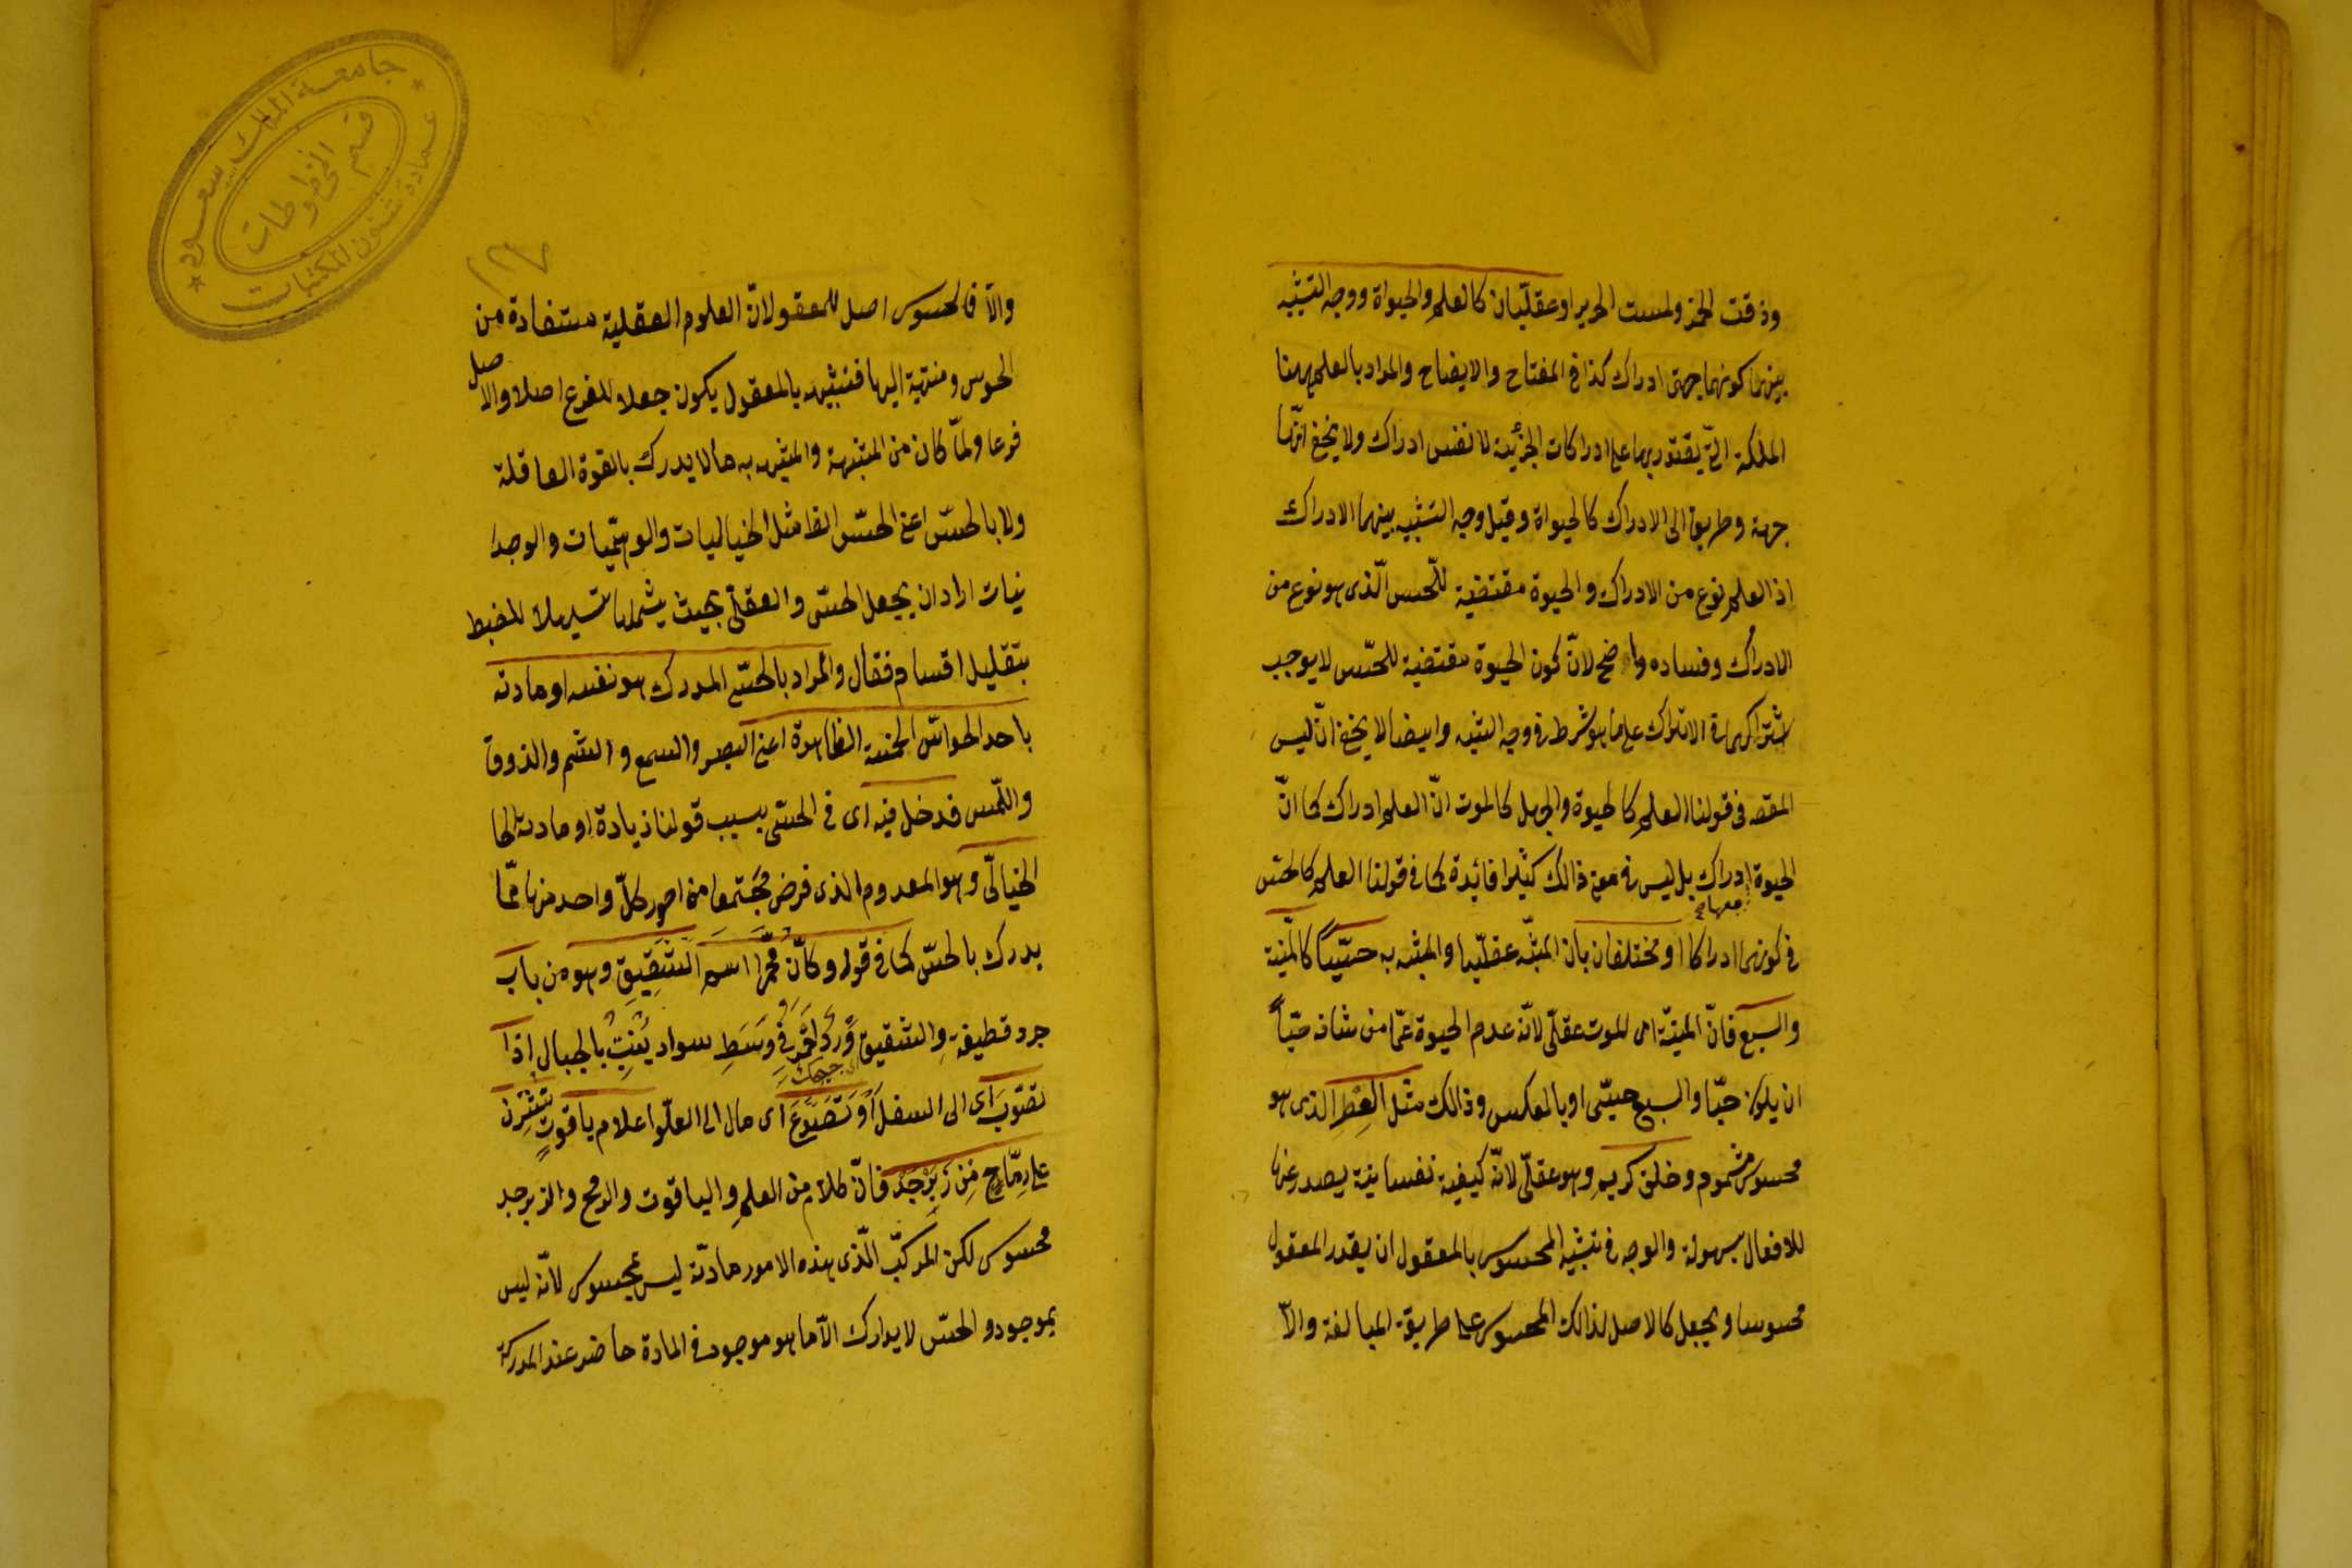 وذقت الخمر ولمست الحرير او عقليان كالعلم والحيواة ووجه التشبيه
بينهما كونهما جهتى ادراك كذا فى المفتاح والايضاح والمراد بالعلم ههنا
الملكة التى يقتدر بها على ادراكات الجزئية لا نفس ادراك ولا يخفى انّها
جهة وطريق الى الادراك كالحيواة وقيل وجه التشبيه بينهما الادراك
اذ العلم نوع من الادراك والحيوة مقتضية للحس الّذى هو نوع من
الادراك وفساده واضح لانّ كون الحيوة مقتضية للحسّ لا يوجب
اشتراكهما فى الادراك على ما هو شرط فى وجه الشبه وايضا لا يخفى انّ ليس
المقصه فى قولنا العلم كالحيوة والجهل كالموت انّ العلم ادراك كما انّ
الحيوة معها ادراك بل ليس فى معنى ذالك كثيرا فائدة كما فى قولنا العلم كالحسّ
فى كونهما ادراكا او مختلفان بان المشبّه عقليّا والمشبه به حسّيّاً كالمنيّة
والسبع فانّ المنيّة اى الموت عقلىّ لانّه عدم الحيوة عمّا من شانه حيّاً
ان يكون حيّا والسبع حسّى او بالعكس وذالك مثل العِطرِ الذى هو
محسوس مشموم وخلق كريم وهو عقلىّ لانّه كيفية نفسانية يصدر عنها
للافعال بسهولة والوجه فى تشبيه المحسوس بالمعقول ان يقدر المعقول
محسوسا ويجعل كالاصل لذالك المحسوس على طريقة المبالغة والّا
والّا فالمحسوس اصل للمعقول لانّ العلوم العقلية مستفادة من
الحوس ومنتهية اليها فتشبيهه بالمعقول يكون جعلا للفرع اصلا والاصل
فرعا ولمّا كان من المشبهة والمشبه به مالا يدرك بالقوة العاقلة
ولا بالحسّ اعنى الحسّ الظا مثل الخياليات والوهميّات والوجدا
نيات اراد ان يجعل الحسّى والعقلىّ بحيث يشملها تسهيلا للضبط
بتقليل اقسام فقال والمراد بالحسّىّ المدرك هو نفسه او مادته
باحد الحواسّ الخمسة الظاهرة اعنى البصر والسمع والشم والذوق
واللّمس فدخل فيه اى فى الحسّى بسبب قولنا زيادة او مادته الخا
الخيالىّ وهو المعدوم الذى فرض مجتمعا من امور كلّ واحد منها ممّا
يدرك بالحسّ كما فى قوله وكأنّ مُحمّرا اسم الشَّقِيقِ وهو من باب
جرد قطيفة والشقيق وَرد احْمَر فى وَسَطِ سواد يَنبت بالجبال اذا
تصَوَّبَ اى الى السفل أَوْ تَصَعَّدَ اى مال الى العلوّ اعلام ياقوتٍ نُشِرْنَ
على رِمَاحٍ مِن زَبَرْجَد فانّ كلا من العلم والياقوت والرمح والزبرجد
محسوس لكن المركّب الّذى هذه الامور مادته ليس بمحسوس لانّه ليس
بموجود والحسّ لا يدارك الّا ما هو موجود فى المادة حاضر عند المدركة
جامعة الملك سعود
قسم المخطوطات
عمادة شئون المكتبات